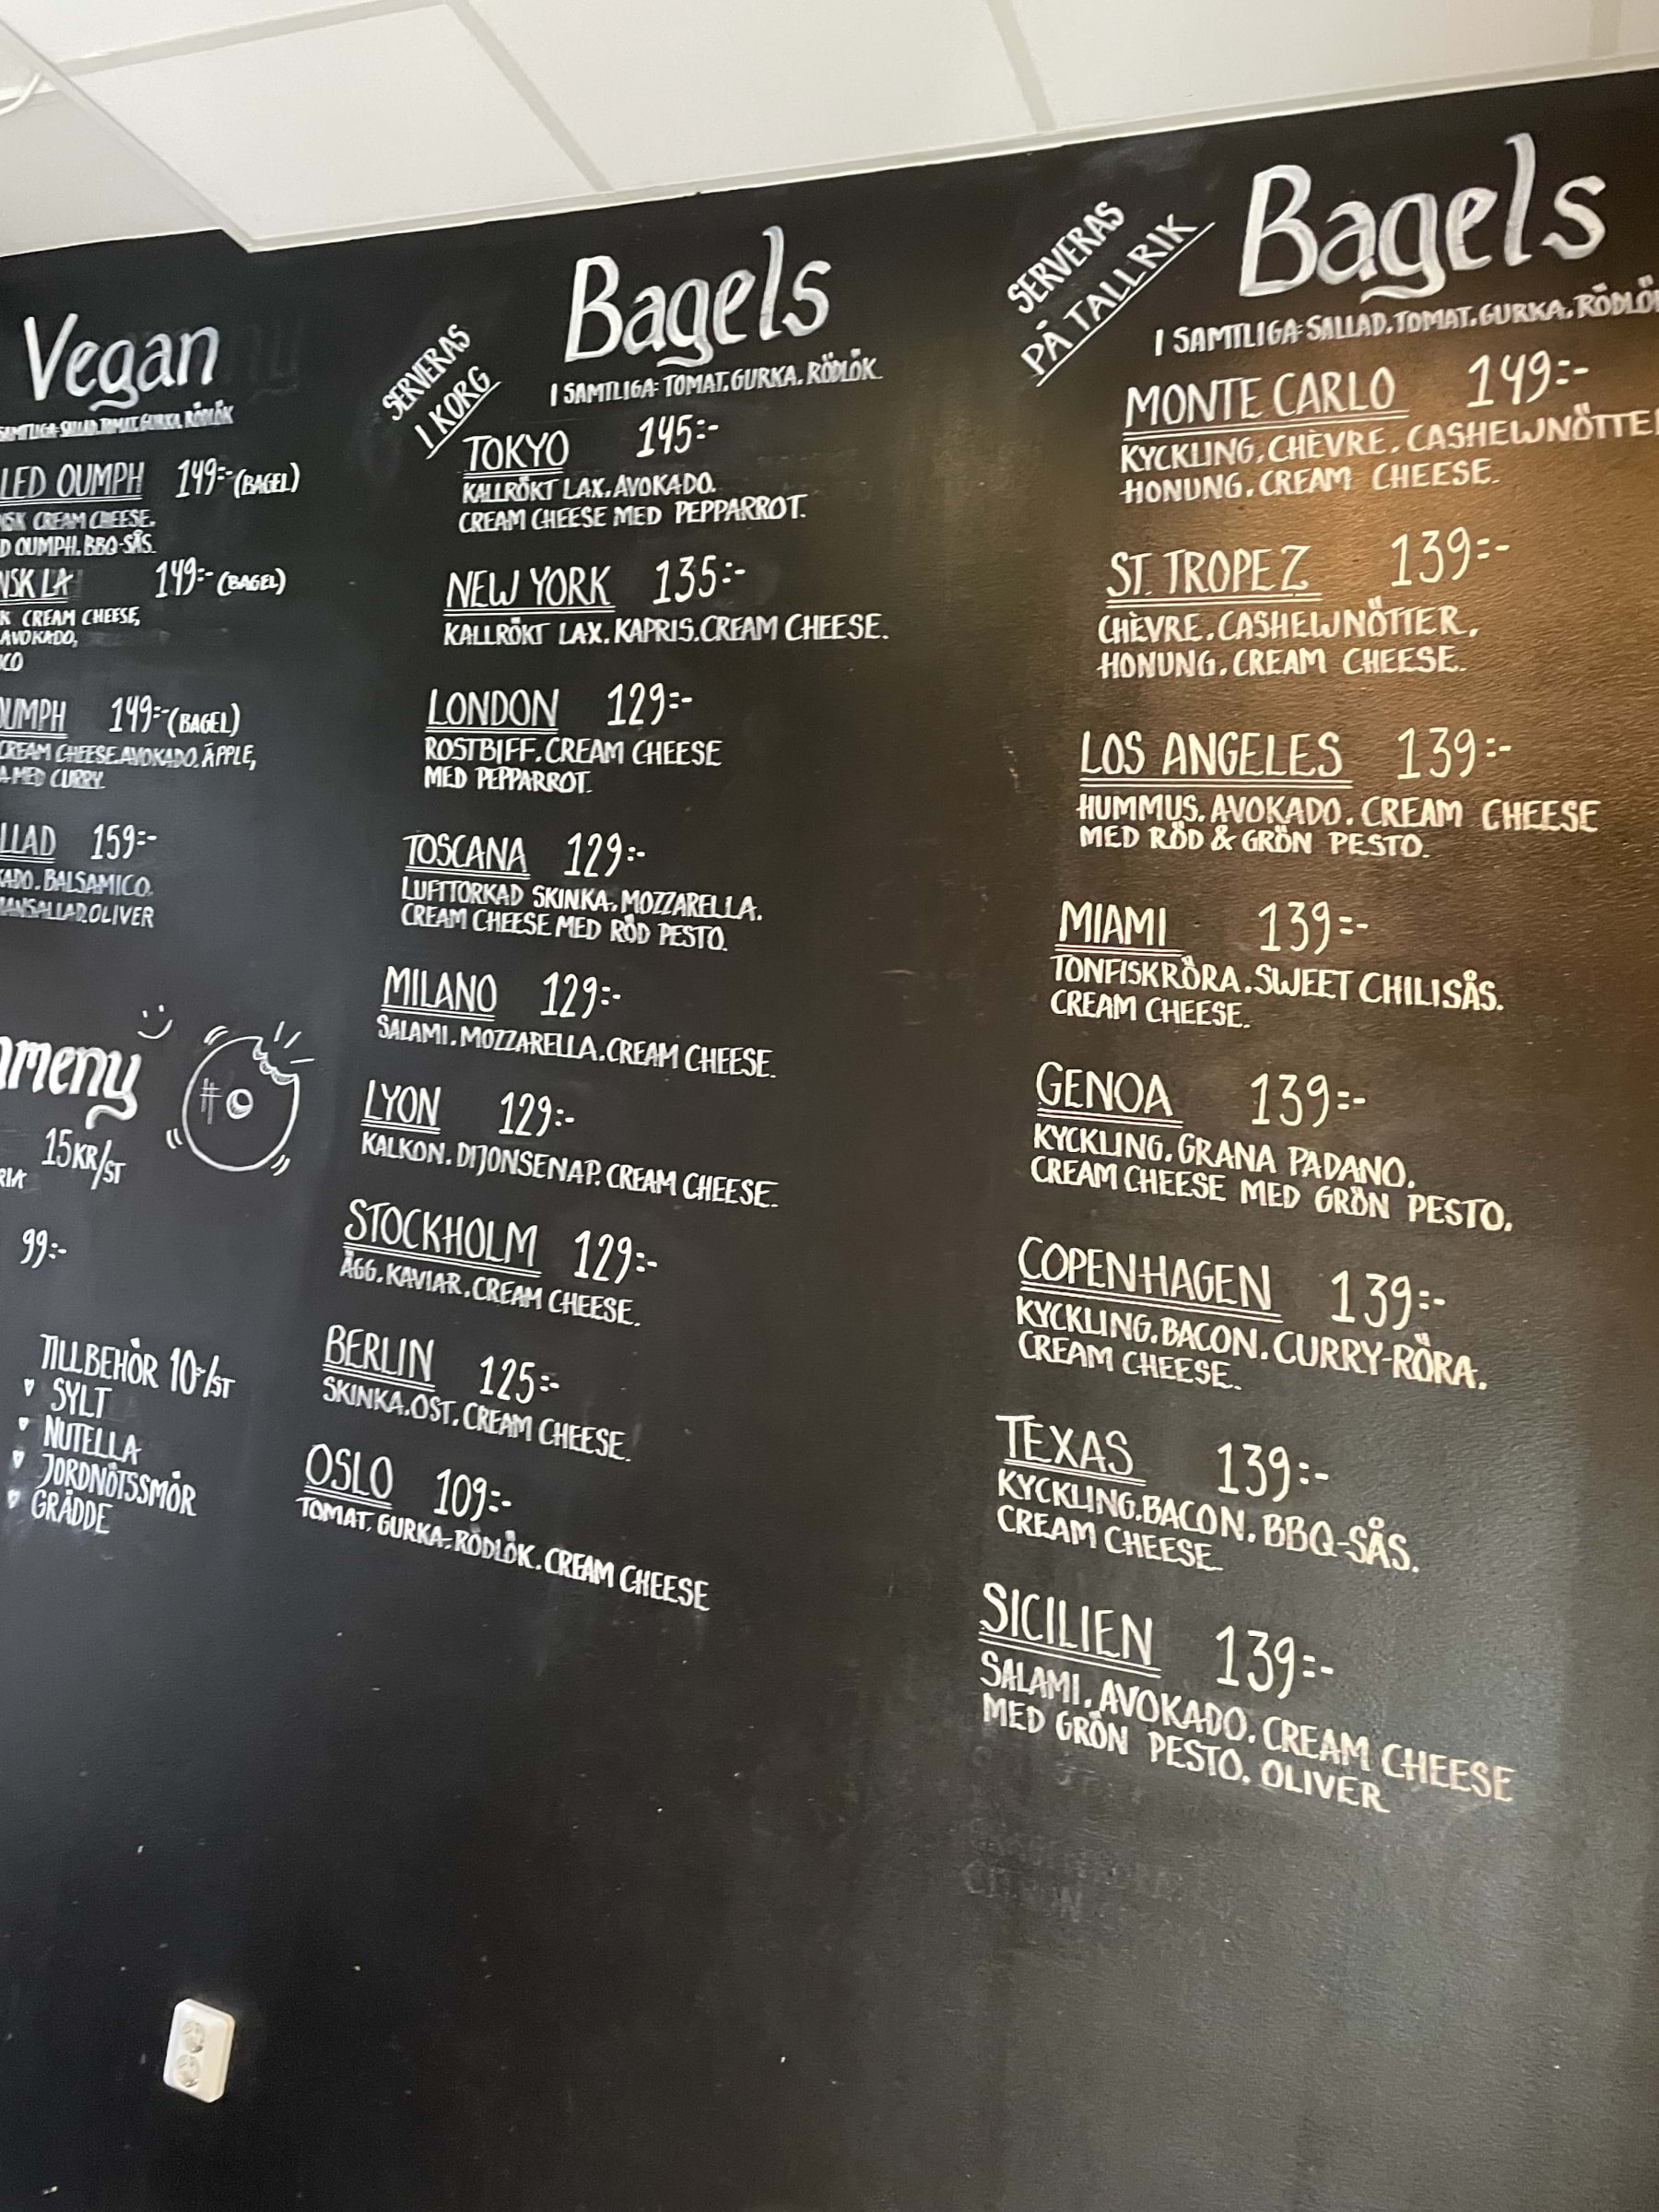 Vegan
SALLAD. TOMAT. GURKA. RÖDLÖK
OUMPH 149:- (BAGEL)
CREAM CHEESE.
OUMPH. BBQ-SÅS.
149:- (BAGEL)
CREAM CHEESE,
AVOKADO,
149:- (BAGEL)
CREAM CHEESE. AVOKADO. ÄPPLE,
MED CURRY.
159:-
BALSAMICO.
OLIVER
15KR/ST
99:-
TILLBEHÖR 10:-/ST
SYLT
NUTELLA
JORDNÖTSSMÖR
GRÄDDE
SERVERAS
I KORG
Bagels
I SAMTLIGA: TOMAT. GURKA. RÖDLÖK.
TOKYO 145:-
KALLRÖKT LAX. AVOKADO.
CREAM CHEESE MED PEPPARROT.
NEW YORK 135:-
KALLRÖKT LAX. KAPRIS. CREAM CHEESE.
LONDON 129:-
ROSTBIFF. CREAM CHEESE
MED PEPPARROT.
TOSCANA 129:-
LUFTTORKAD SKINKA. MOZZARELLA.
CREAM CHEESE MED RÖD PESTO.
MILANO 129:-
SALAMI. MOZZARELLA. CREAM CHEESE.
LYON 129:-
KALKON. DIJONSENAP. CREAM CHEESE.
STOCKHOLM 129:-
ÄGG. KAVIAR. CREAM CHEESE.
BERLIN 125:-
SKINKA. OST. CREAM CHEESE.
OSLO 109:-
TOMAT. GURKA. RÖDLÖK. CREAM CHEESE
SERVERAS
PÅ TALLRIK
Bagels
I SAMTLIGA: SALLAD. TOMAT. GURKA.
MONTE CARLO 149:-
KYCKLING. CHÈVRE.
HONUNG. CREAM CHEESE.
ST. TROPEZ 139:-
CHÈVRE. CASHEWNÖTTER.
HONUNG. CREAM CHEESE.
LOS ANGELES 139:-
HUMMUS. AVOKADO. CREAM CHEESE
MED RÖD & GRÖN PESTO.
MIAMI 139:-
TONFISKRÖRA. SWEET CHILISÅS.
CREAM CHEESE.
GENOA 139:-
KYCKLING. GRANA PADANO.
CREAM CHEESE MED GRÖN PESTO.
COPENHAGEN 139:-
KYCKLING. BACON. CURRY-RÖRA.
CREAM CHEESE.
TEXAS 139:-
KYCKLING. BACON. BBQ-SÅS.
CREAM CHEESE.
SICILIEN 139:-
SALAMI. AVOKADO. CREAM CHEESE
MED GRÖN PESTO. OLIVER